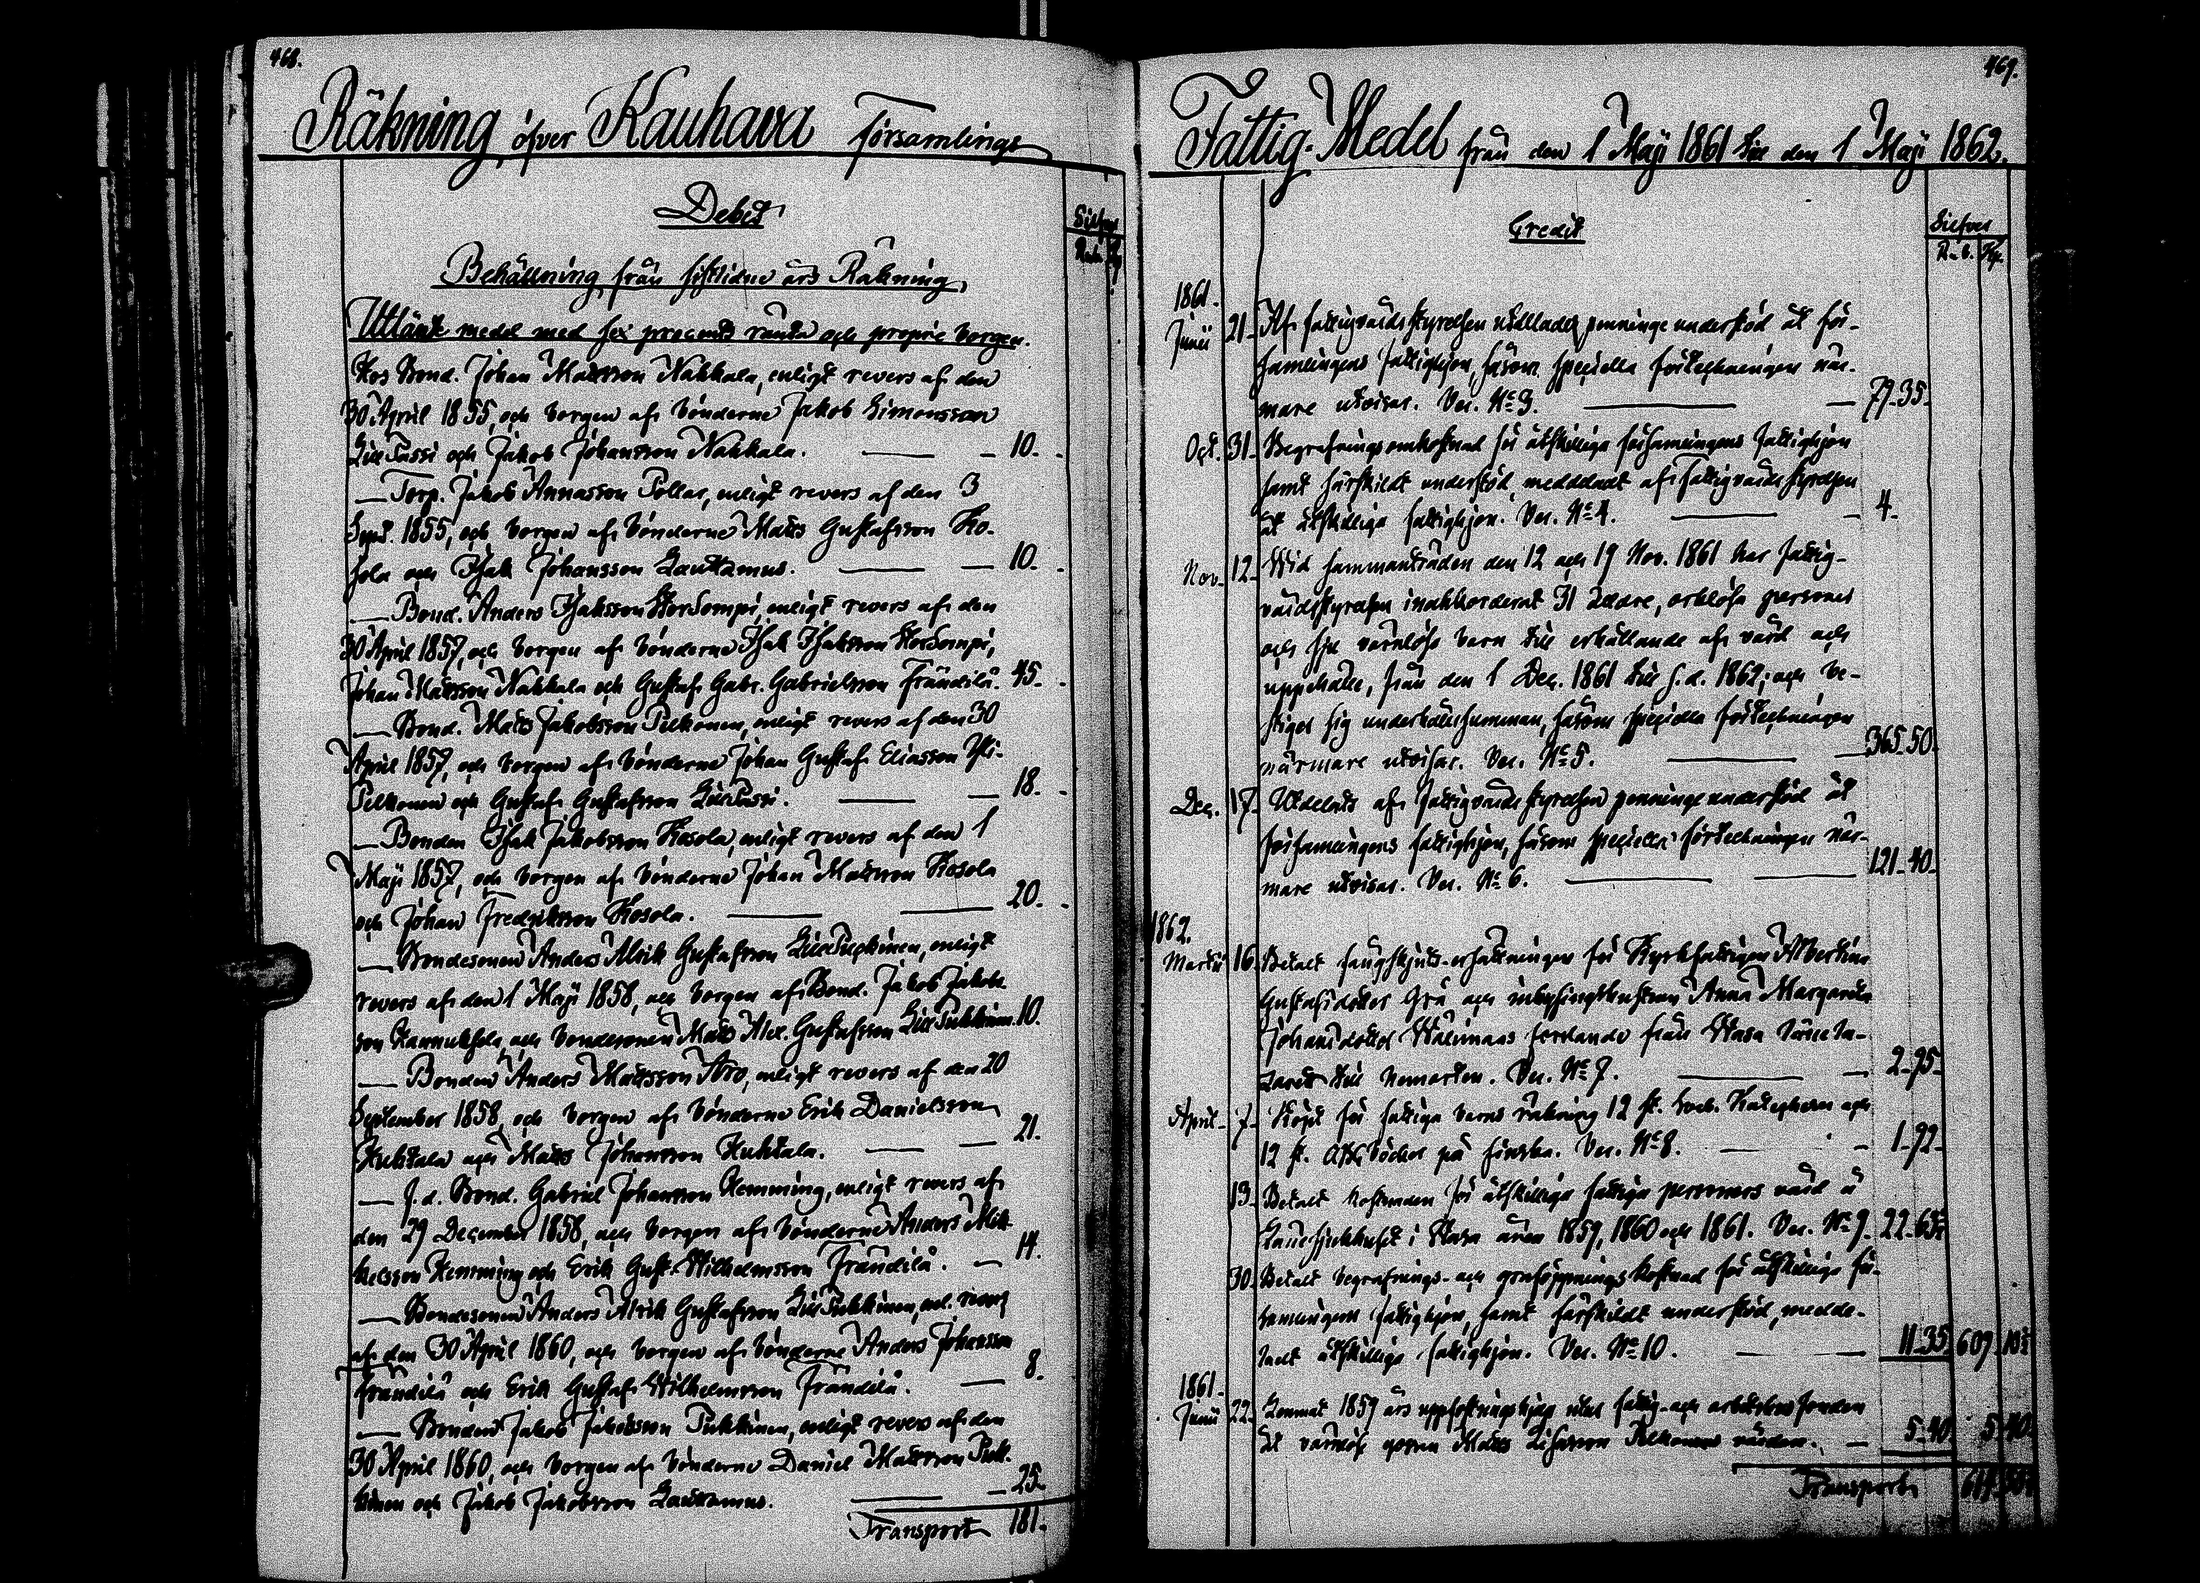 468.
Räkning öfver Kauhava Församlings
Debet
Silfver
Rub. Kp
Behållning från sistlidne års Räkning.
Utlånte medel med sex procents ränta och proprie borgen.
Hos Bond. Johan Mattsson Nahkala, enligt revers af den
30 April 1855, och borgen af bönderne Jakob Simonsson
Lill Passi och Jakob Johansson Nahkala. 10.
Torp. Jakob Annasson Pollar, enligt revers af den 3
Sept. 1855, och borgen af bönderne Matts Gustafsson Ko-
sola och Isak Johansson Lautamus. 10.
Bond. Anders Isaksson StorSompi, enligt revers af den
30 April 1857, och borgen af bönderne Isak Isaksson StorSompi,
Johan Mattsson Nahkala och Gustaf Gabr. Gabrielsson Frändilä. 45.
Bond. Matts Jakobsson Pelkonen, enligt revers af den 30
April 1857, och borgen af bönderne Johan Gustaf Eliasson Yli-
Pelkonen och Gustaf Gustafsson LillPassi. 18.
Bonden Isak Jakobsson Kosola, enligt revers af den 1
Maji 1857, och borgen af bönderne Johan Mattsson Kosola
och Johan Fredriksson Kosola. 20.
Bondesonen Anders Alrik Gustafsson enligt
revers af den 1 Maji 1858, och borgen af Bond. Jakob Jakobs-
son och bondesonen Matts Alex. Gustafsson LillPukkinen. 10.
Bonden Anders Mattsson Aro, enligt revers af den 20
September 1858, och borgen af bönderne Erik Danielsson
Huhtala och Matts Johansson Huhtala. 21.
f. d. Bond. Gabriel Johansson Hemming, enligt revers af
den 29 December 1858, och borgen af bönderne Anders Mik-
kelsson Hemming och Erik Gust. Wilhelmsson Frändilä. 14.
Bondesonen Anders Alrik Gustafsson LillPukkinen, enl. revers
af den 30 April 1860, och borgen af bönderne Anders Johansson
Frändilä och Erik Gustaf Wilhelmsson Frändilä. 8.
Bonden Jakob Jakobsson Pukkinen, enligt revers af den
30 April 1860, och borgen af bönderne Daniel Mattsson Puk-
kinen och Jakob Jakobsson Lautamus. 25.
Transport 181.
469.
Fattig-Medel från den 1 Maji 1861 till den 1 Maji 1862.
Credit
Silfver
Rub. Kp.
1861.
Junii 21. Af fattigvårdsstyrelsen utdelladt penningeunderstöd åt för-
samlingens fattighjon, såsom speciella förteckningen när-
mare utvisar. Ver. No 3. 79. 35.
Oct. 31. Begrafningsomkostnad för åtskilliga församlingens fattighjon
samt särskildt understöd meddeladt af fattigvårdsstyrelsen
åt åtskilliga fattighjon. Ver. No 4. 4.
Nov. 12. Wid sammanträden den 12 och 19 Nov. 1861 har fattig-
vårdsstyrelsen inakkorderat 31 äldre, orklösa personer
och sju värnlösa barn till erhållande af vård och
uppehälle, från den 1 Dec. 1861 till s. d. 1862; och be-
stiger sig underhållssumman, såsom speciella förteckningen
närmare utvisar. Ver. No 5. 365. 50.
Dec. 17. Utdelats af fattigvårdsstyrelsen penningeunderstöd åt
församlingens fattighjon, såsom speciella förteckningen när-
mare utvisar. Ver. No 6. 121. 40.
1862.
Martii 16. Betalt fångskjuts-ersättningen för Kyrkfattigen Albertina
Gustafsdotter Grå och inhysingshustrun Anna Margareta
Johansdotter Wälimaas forslande från Wasa länela-
zarett till hemorten. Ver. No 7. 2. 95.
April. 7. Köpt för fattiga barns räkning 12 st. Katechesen och
12 st. böcker på finska. Ver. No 8. 1. 92.
13. Betalt kostnaden för åtskilliga fattiga personers vård å
i Wasa åren 1859, 1860 och 1861. Ver. No 9. 22. 63½
30. Betalt begrafnings- och graföppningskostnad för åtskilliga för-
samlingens fattighjon, samt särskildt understöd, medde-
ladt åtskilliga fattighjon. Ver. No 10. 11. 35. 609. 10½
1861.
Junii 22. 1859 års uppfostringshjelp utur fattig- och
åt värnlöse gossen Matts Pelkonens vården. 5. 40. 5. 40.
Transport 614. 50½